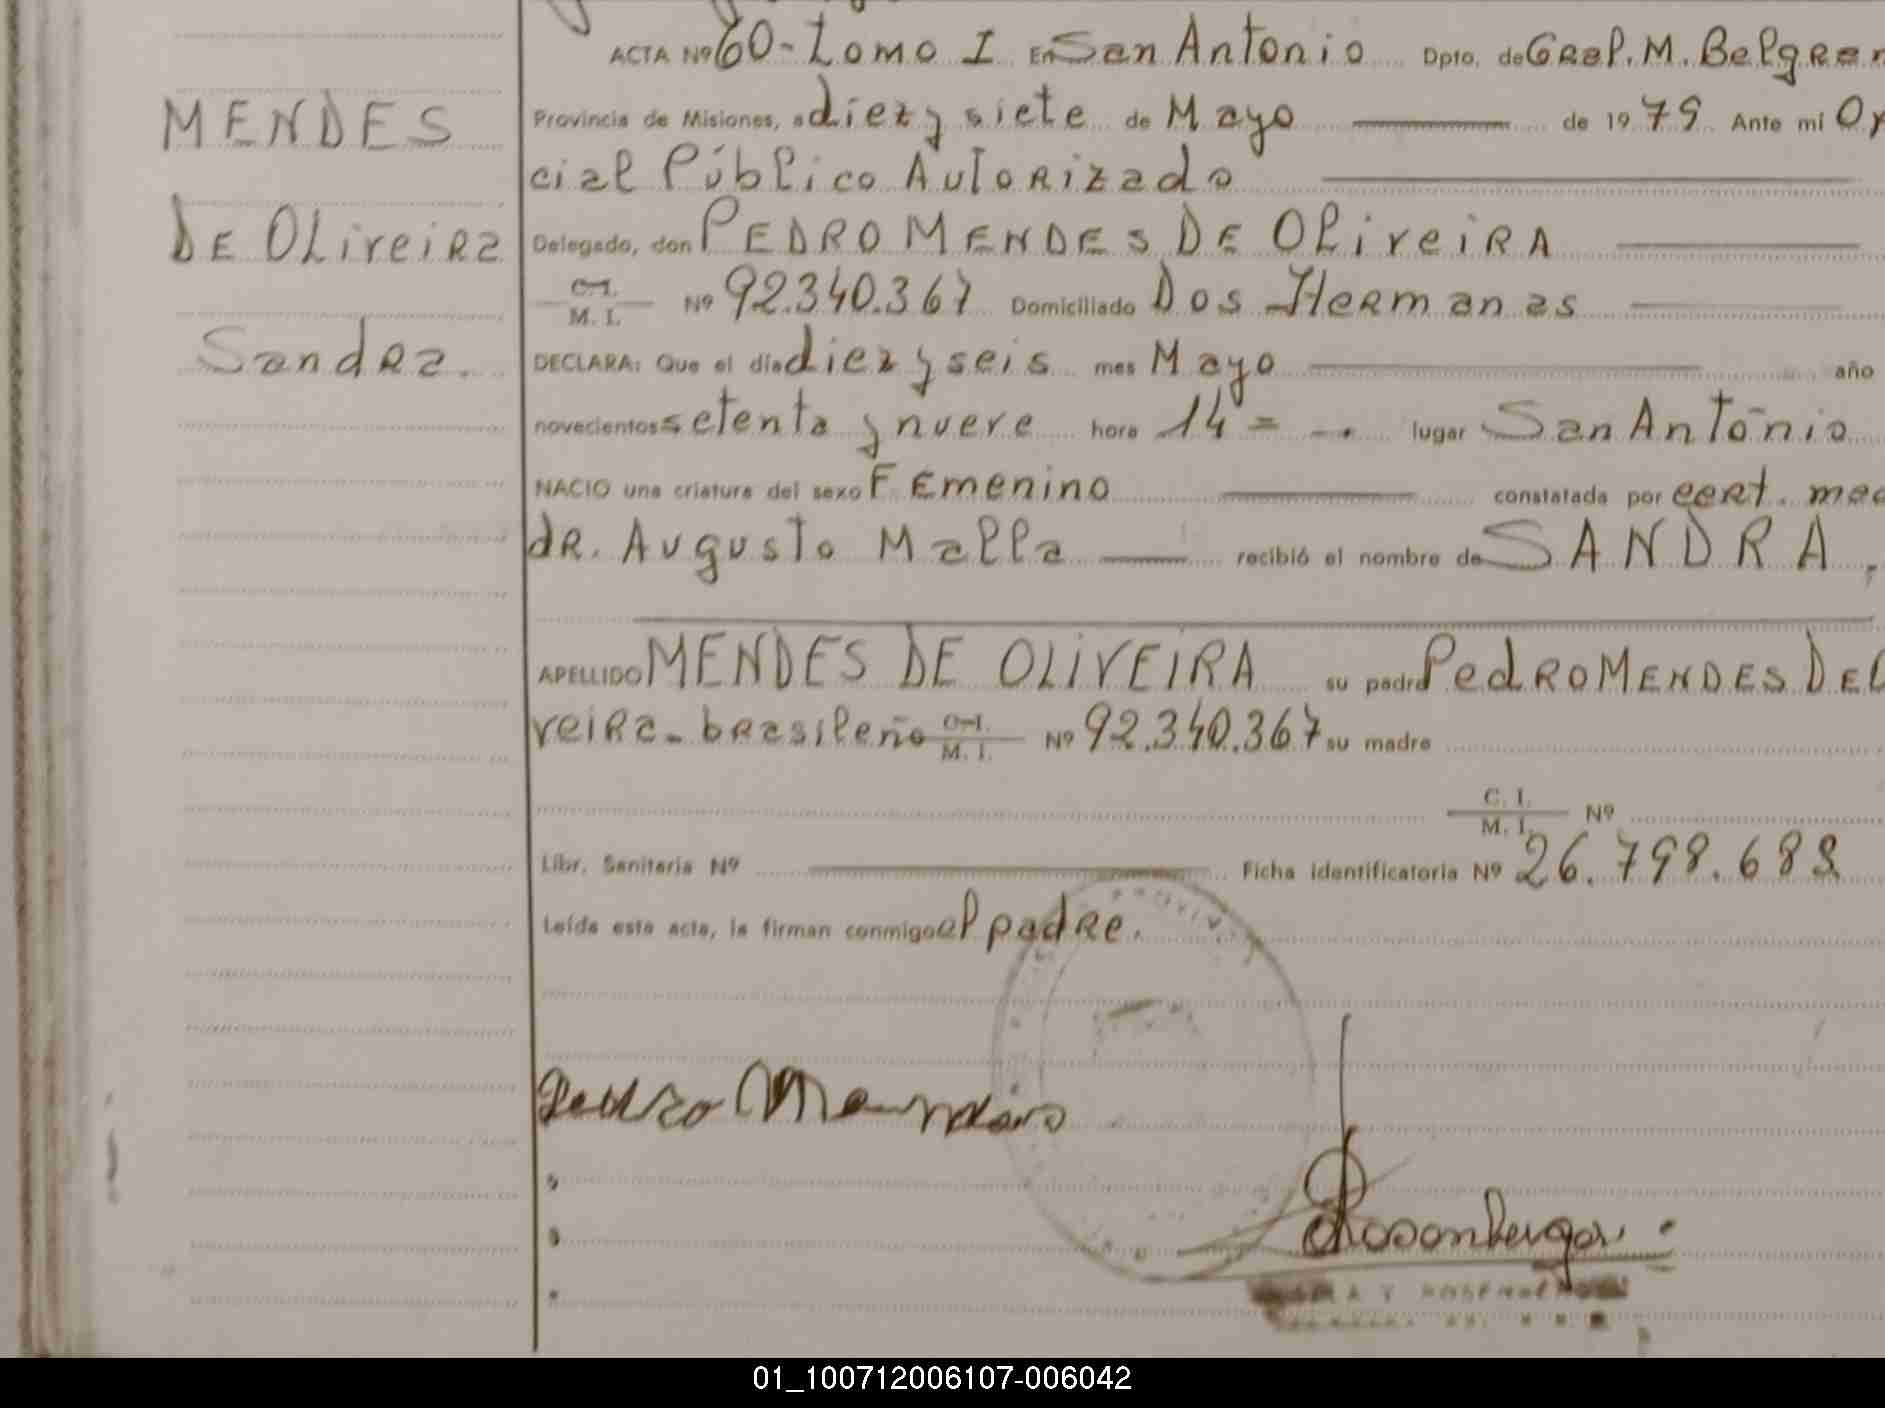 ACTA Nº 60-Tomo I En San Antonio Dpto. de Gral. M. Belgran
MENDES
Provincia de Misiones, a diez y siete de Mayo de 1979 Ante mi
cial Público Autorizado
DE OLiveira
Delegado, don PEDRO MENDES DE OliveiRA
C.I.
M. I. Nº 92.340.367 Domiciliado Dos Hermanas
Sandra.
DECLARA: Que el día diez y seis mes Mayo año
novecientos setenta y nueve hora 14 = lugar San Antonio
NACIO una criatura del sexo FEmenino constatada por cert. med
dR. Augusto Malla recibió el nombre de SANDRA,
APELLIDO MENDES DE OLIVEIRA su padre Pedro MENDES DE O
veira- brasileño C.I.
M. I. Nº 92.340.367 su madre
C. I.
M. I. Nº
Libr. Sanitaria Nº Ficha identificatoria Nº 26.798.688
Leída esta acta, la firman conmigo el padre.
Pedro Mendes
Rosenberger.
01_100712006107-006042